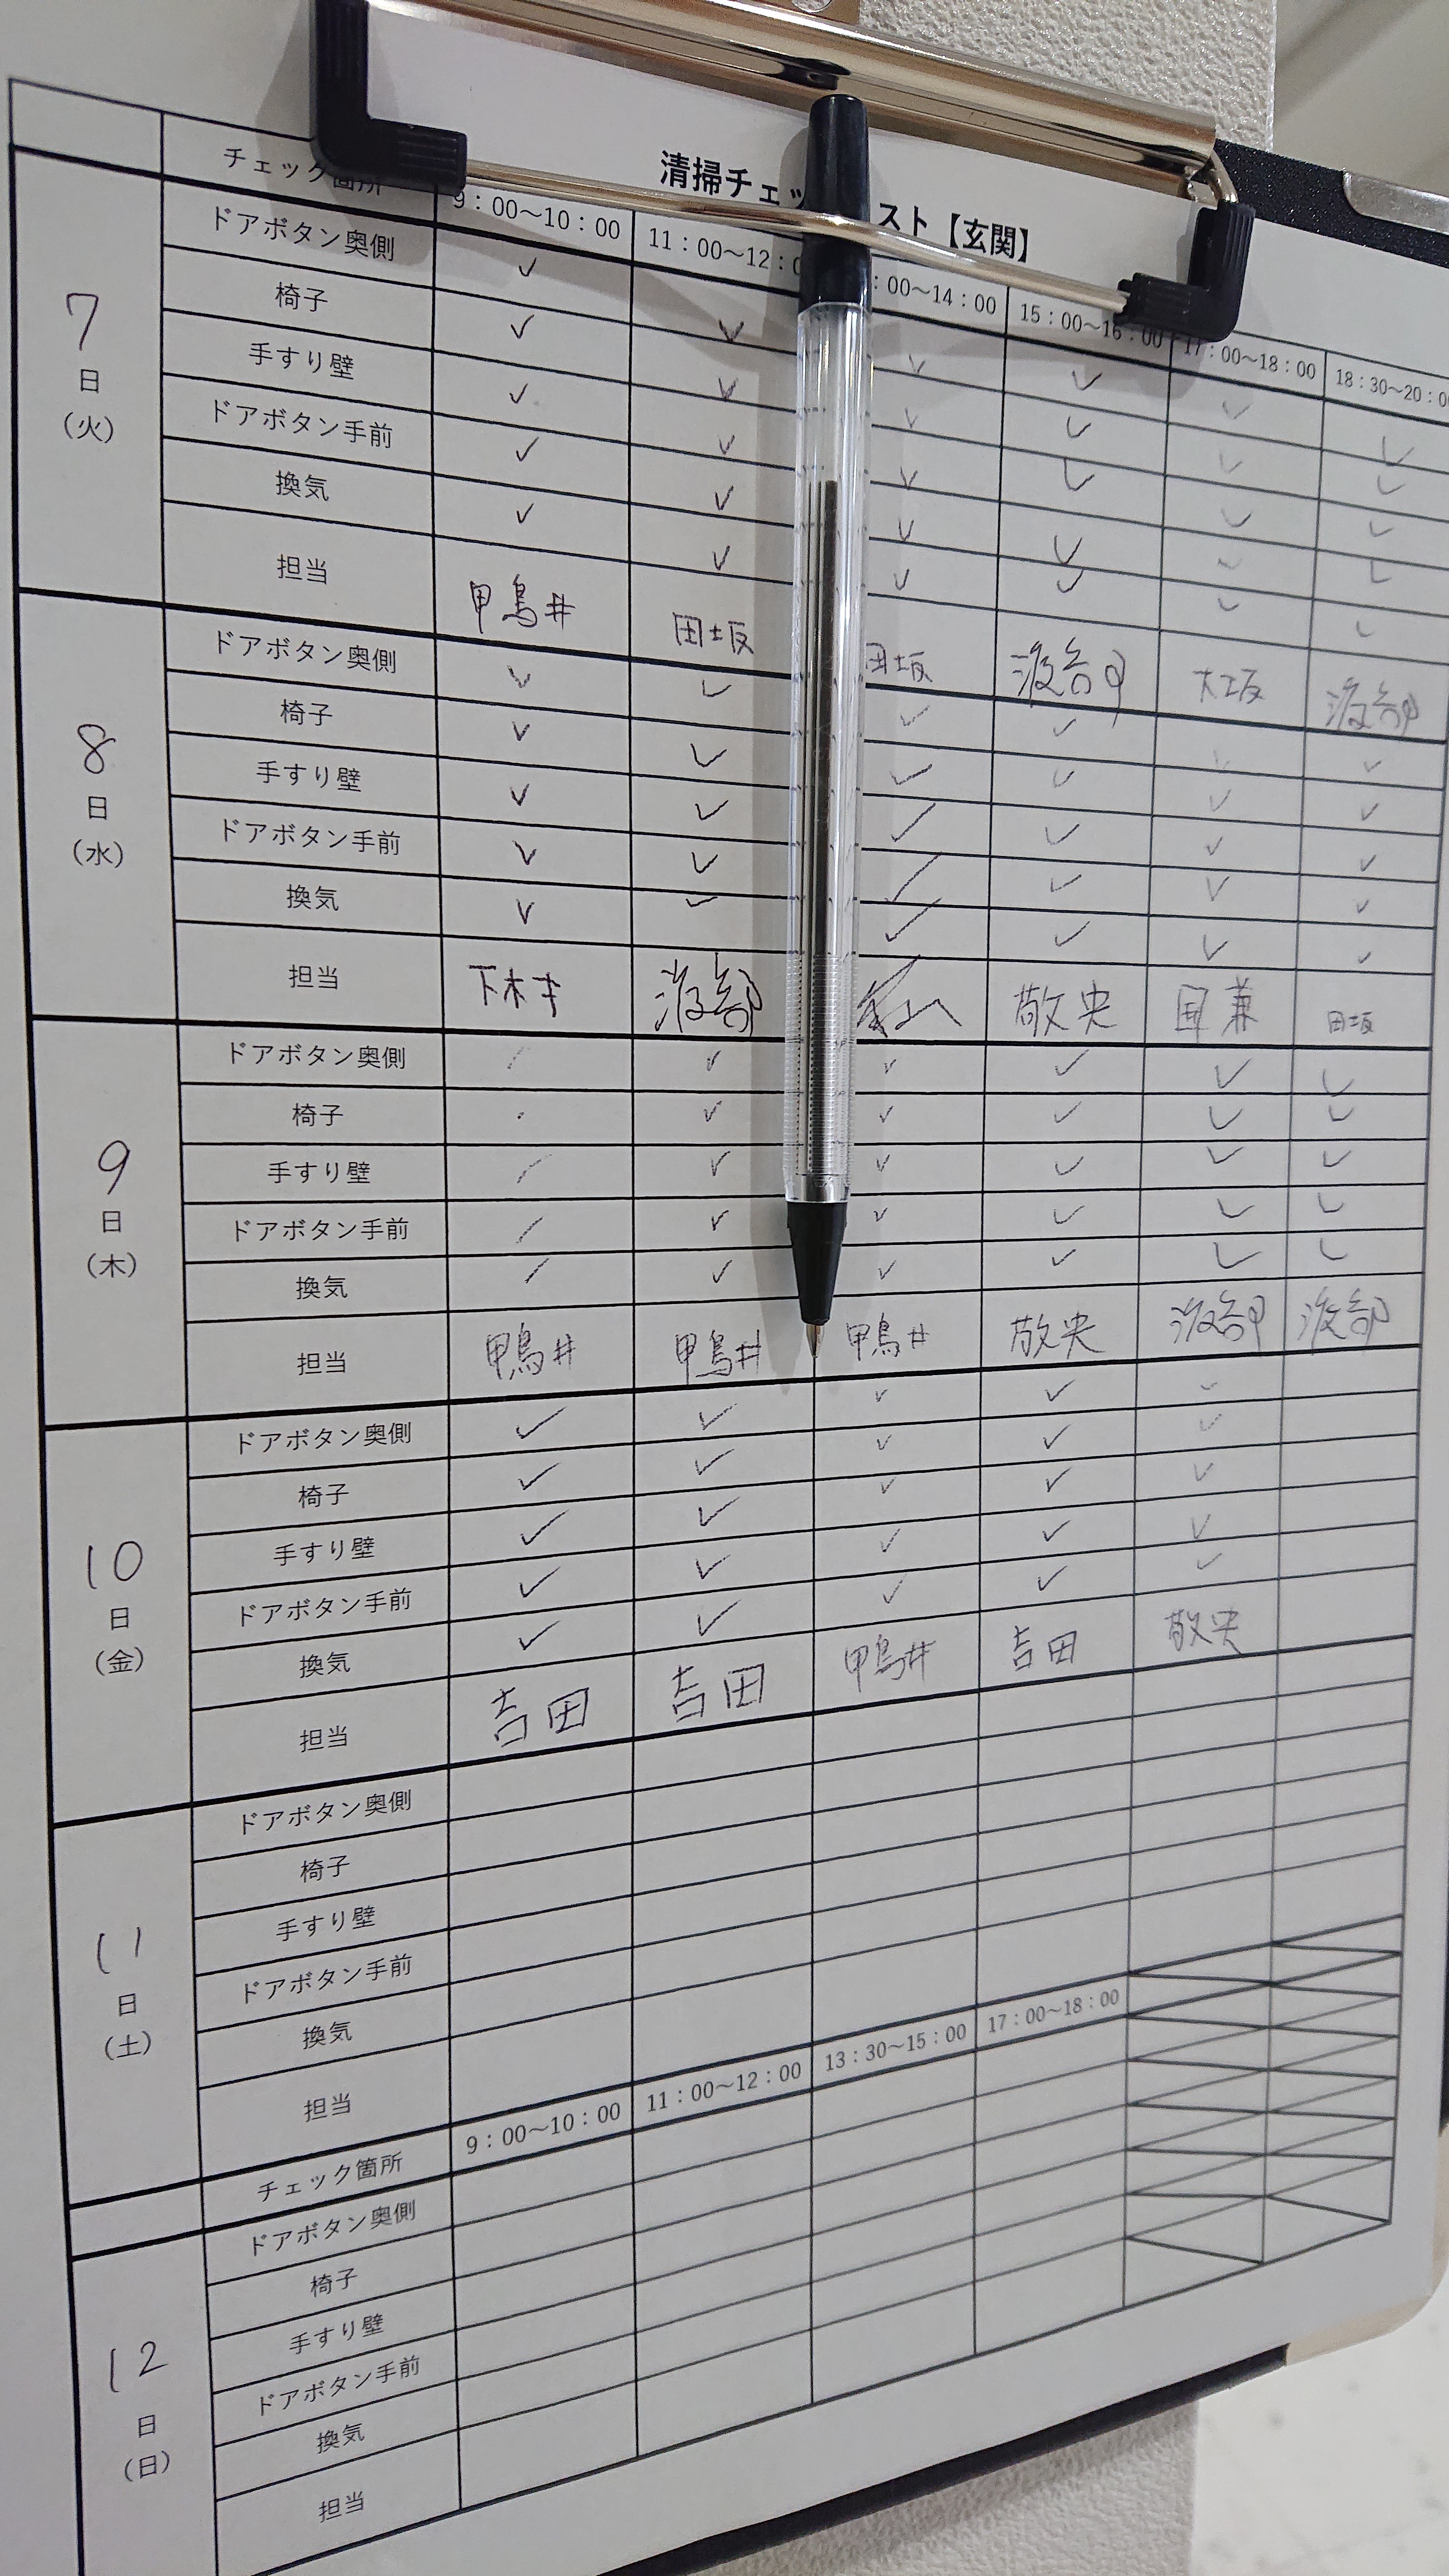 清掃チェッ スト【玄関】
チェック箇所 9：00～10：00 11：00～12：0 ：00～14：00 15：00～16：00 17：00～18：00 18：30～20：0
7日（火）
ドアボタン奥側 ✓ ✓ ✓ ✓ ✓ ✓
椅子 ✓ ✓ ✓ ✓ ✓ ✓
手すり壁 ✓ ✓ ✓ ✓ ✓ ✓
ドアボタン手前 ✓ ✓ ✓ ✓ ✓ ✓
換気 ✓ ✓ ✓ ✓ ✓ ✓
担当 鴨井 田坂 田坂 渡部 大坂 渡部
8日（水）
ドアボタン奥側 ✓ ✓ ✓ ✓ ✓ ✓
椅子 ✓ ✓ ✓ ✓ ✓ ✓
手すり壁 ✓ ✓ ✓ ✓ ✓ ✓
ドアボタン手前 ✓ ✓ ✓ ✓ ✓ ✓
換気 ✓ ✓ ✓ ✓ ✓ ✓
担当 下村 渡部 敬央 国兼 田坂
9日（木）
ドアボタン奥側 ✓ ✓ ✓ ✓ ✓
椅子 ✓ ✓ ✓ ✓ ✓
手すり壁 ✓ ✓ ✓ ✓ ✓
ドアボタン手前 ✓ ✓ ✓ ✓ ✓
換気 ✓ ✓ ✓ ✓ ✓
担当 鴨井 鴨井 鴨井 敬央 渡部 渡部
10日（金）
ドアボタン奥側 ✓ ✓ ✓ ✓ ✓
椅子 ✓ ✓ ✓ ✓ ✓
手すり壁 ✓ ✓ ✓ ✓ ✓
ドアボタン手前 ✓ ✓ ✓ ✓ ✓
換気 ✓ ✓ ✓ ✓ ✓
担当 吉田 吉田 鴨井 吉田 敬央
11日（土）
ドアボタン奥側
椅子
手すり壁
ドアボタン手前
換気
担当
チェック箇所 9：00～10：00 11：00～12：00 13：30～15：00 17：00～18：00
12日（日）
ドアボタン奥側
椅子
手すり壁
ドアボタン手前
換気
担当